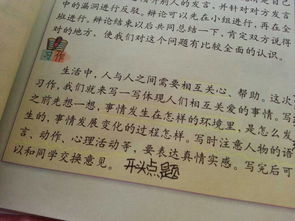 别开别人的发言，并针对对方发言
中的漏洞进行反驳。辩论可以先在小组进行，再在全
班进行。辩论结束以后共同总结一下，肯定双方说得
对的地方，使我们对这个问题有比较全面的认识。
习作
生活中，人与人之间需要相互关心、帮助。这次
习作，我们就来写一写体现人们相互关爱的事情。写
之前先想一想，事情发生在怎样的环境里，是怎么发
生的，事情发展变化的过程怎样。写时注意人物的语
言、动作、心理活动等，要表达真情实感。写完后可
以和同学交换意见。 开头点题